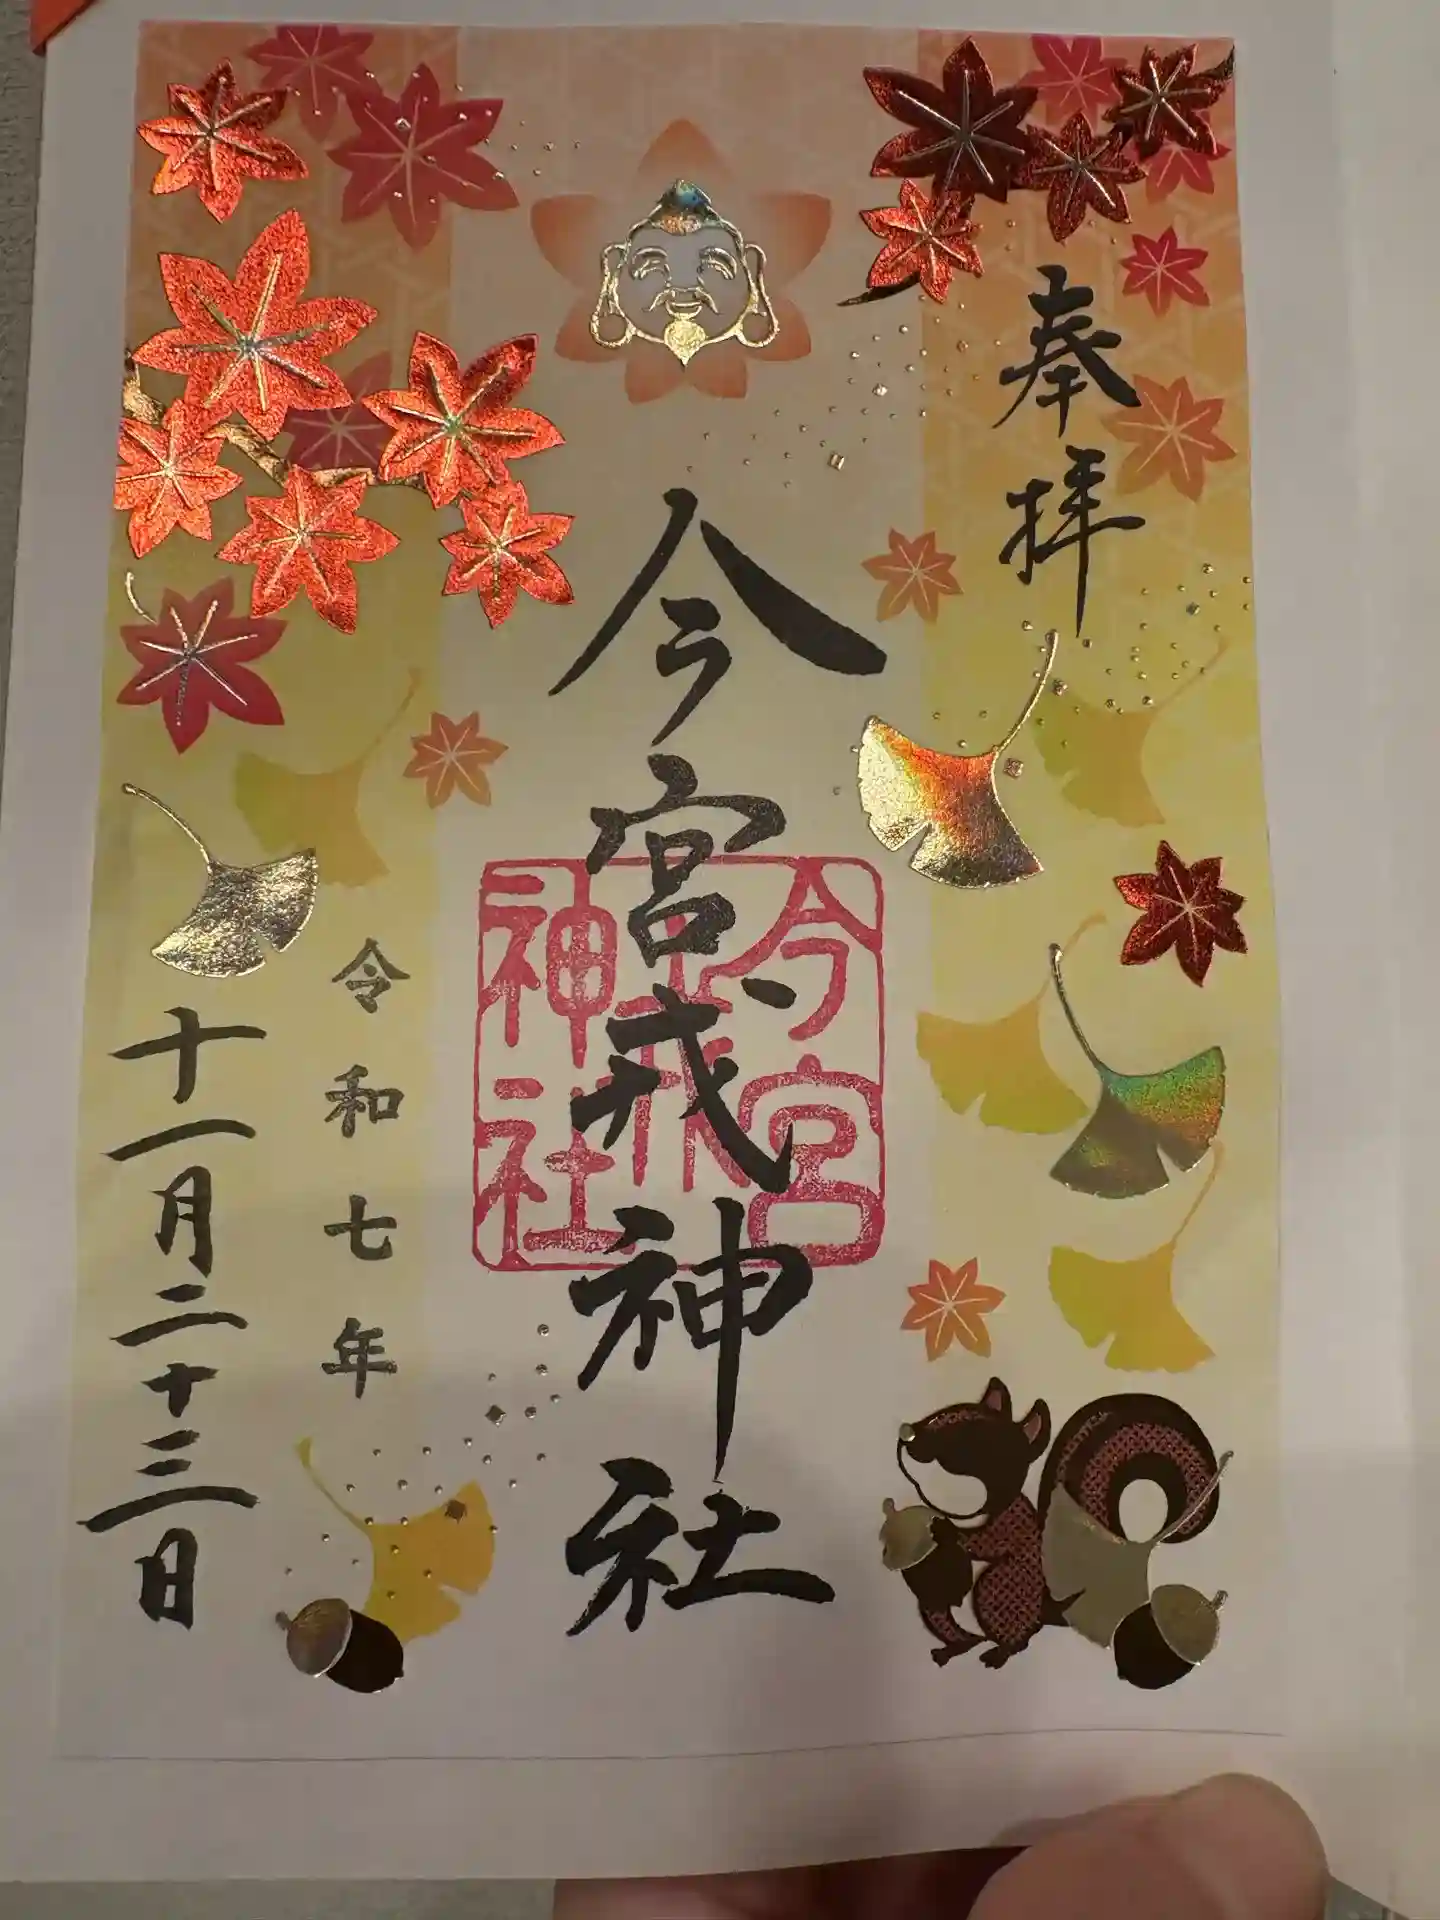 奉拝
今宮戎神社
今宮戎神社
令和七年
十一月二十三日